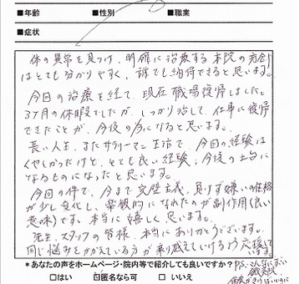 ■年齢 ■性別 ■職業
■症状
体の異常を見つけ、明確に治療する本院の方針
はとても分かりやすく、誰でも納得できると思います。
今回の治療を経て、現在職場復帰しました。
3ヶ月の休暇でしたが、しっかり治して、仕事に復帰
できたことが、今後の力になると思います。
長い人生、またサラリーマン生活で、今回の経験は
くやしかったけど、とても良い経験、今後の土台に
なるものになったと思います。
今回の件で、今まで完璧主義、負けず嫌いの性格
が少し変化し、楽観的になれたのが副作用(良い
意味)です。本当に嬉しく思います。
先生、スタッフの皆様、本当にありがとうございます。
同じ悩みをかかえている方が
*あなたの声をホームページ・院内等で紹介しても良いですか?
□はい ☑匿名なら可 □いいえ